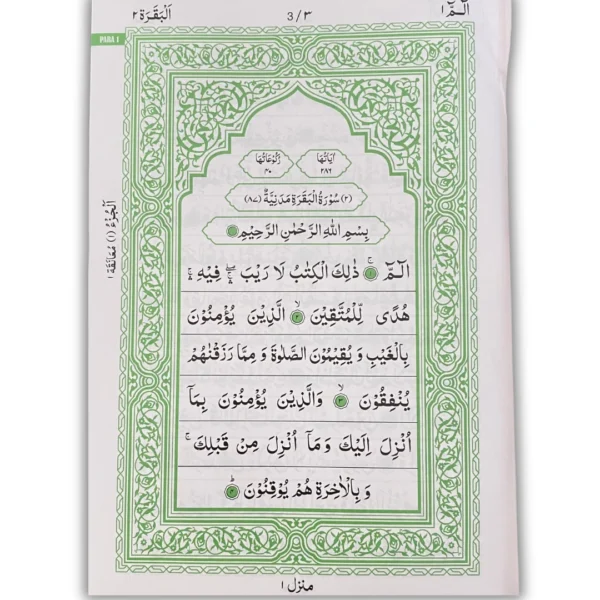 الٓـمّٓ ١
3/٣
اَلْبَقَرَة ٢
PARA 1
اٰيَاتُهَا ٢٨٦
رُكُوْعَاتُهَا ٤٠
(٢) سُوْرَةُ الْبَقَرَةِ مَدَنِيَّةٌ (٨٧)
بِسْمِ اللّٰهِ الرَّحْمٰنِ الرَّحِيْمِ
الٓـمّٓ ۚ ١ ذٰلِكَ الْكِتٰبُ لَا رَيْبَ ۛ فِيْهِ ۛ
هُدًى لِّلْمُتَّقِيْنَ ۙ ٢ الَّذِيْنَ يُؤْمِنُوْنَ
بِالْغَيْبِ وَ يُقِيْمُوْنَ الصَّلٰوةَ وَ مِمَّا رَزَقْنٰهُمْ
يُنْفِقُوْنَ ۙ ٣ وَالَّذِيْنَ يُؤْمِنُوْنَ بِمَاۤ
اُنْزِلَ اِلَيْكَ وَ مَاۤ اُنْزِلَ مِنْ قَبْلِكَ ۚ
وَ بِالْاٰخِرَةِ هُمْ يُوْقِنُوْنَ ؕ ٤
اَلْجُزْءُ (١) مُعَانَقَة ١
منزل ١